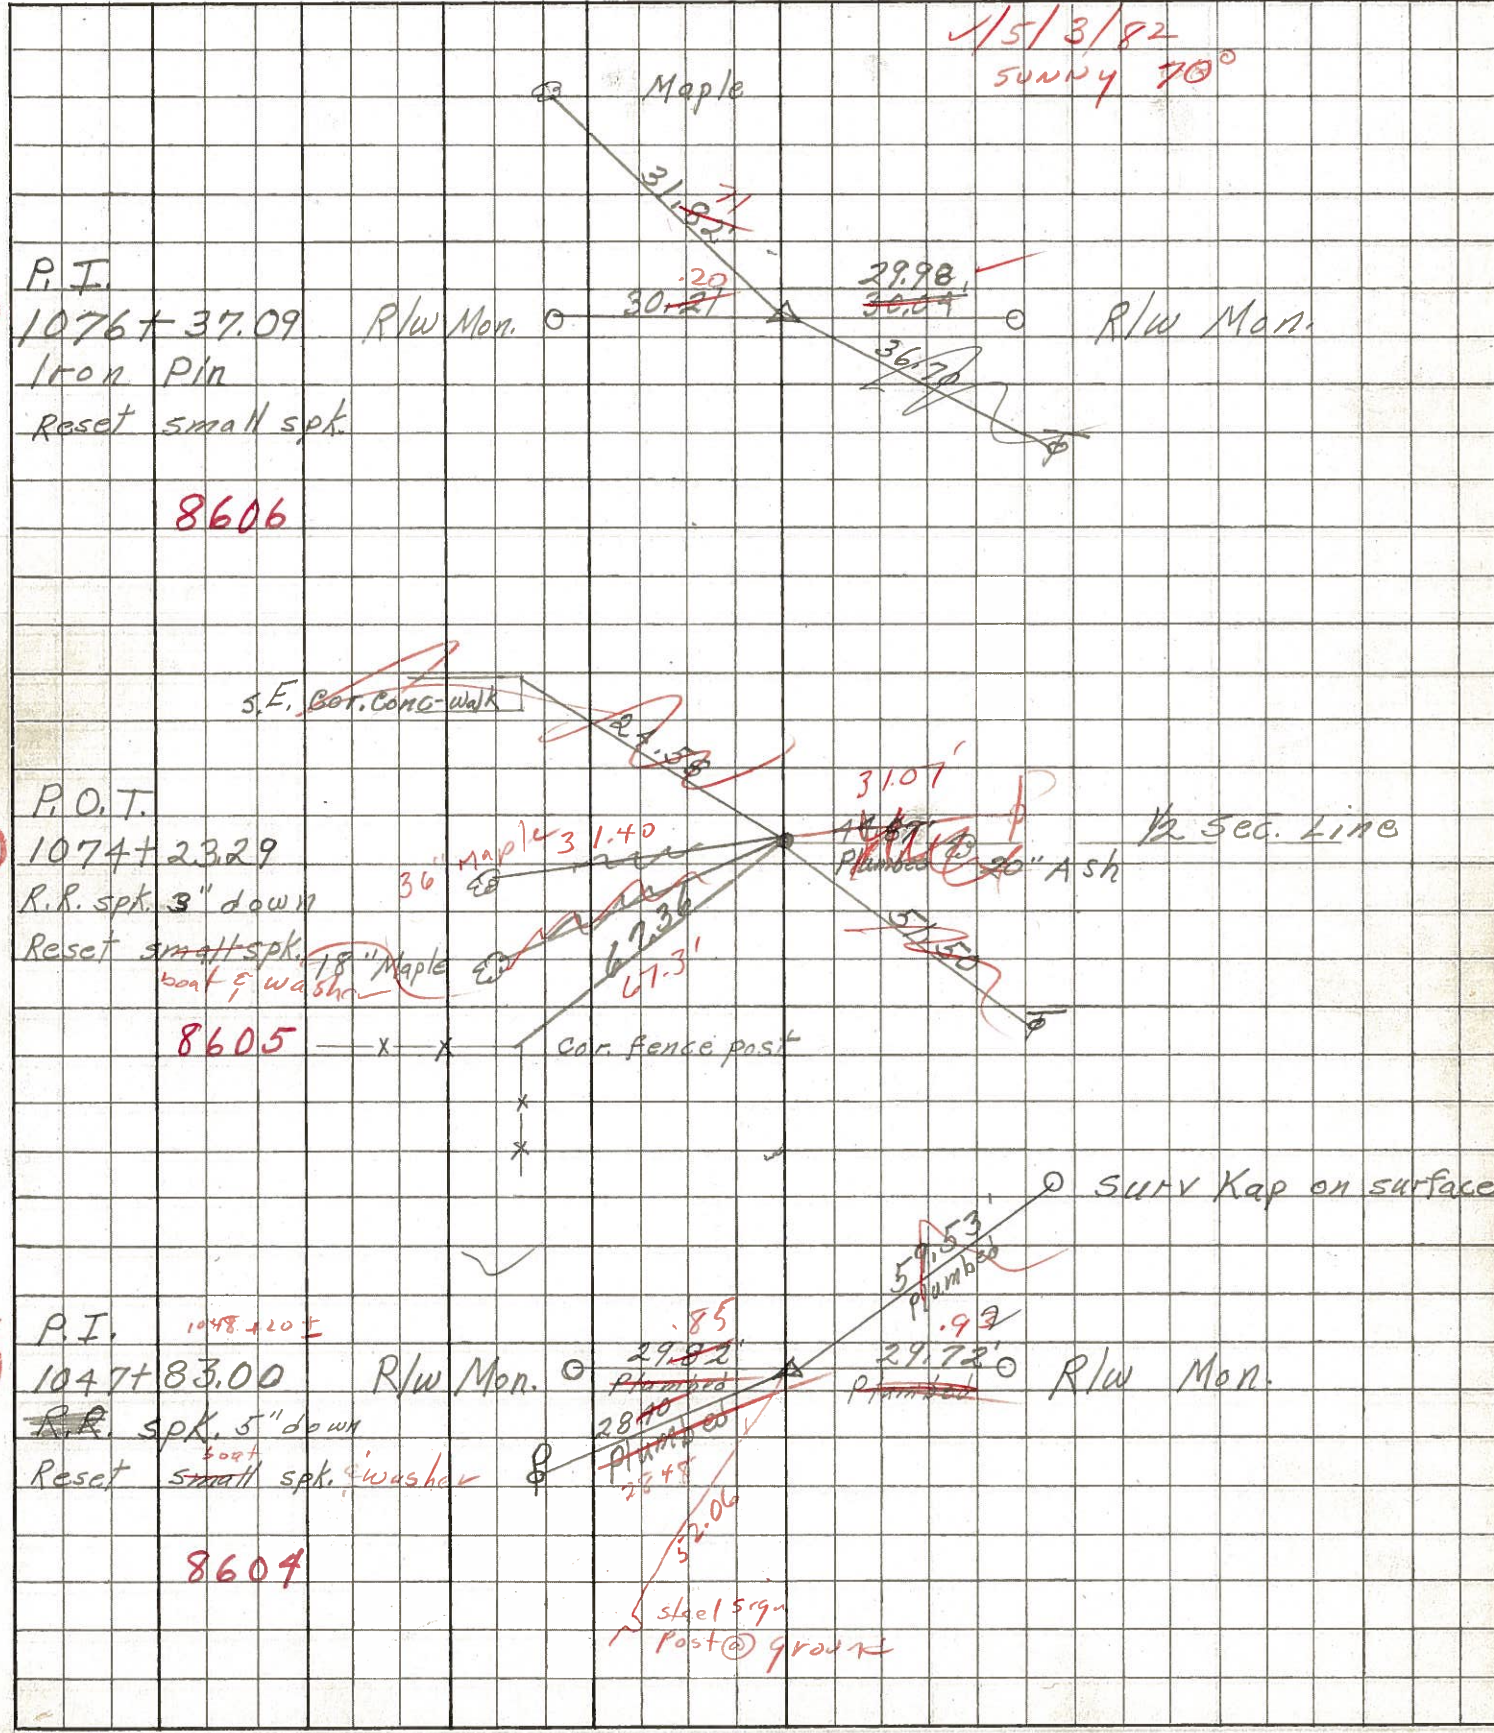 √ 5/3/82
SUNNY 70°
Maple
31.82' 71
P.I.
1076+37.09
Iron Pin
Reset small spk.
R/W Mon.
.20
30.27
29.98
30.04
R/W Mon.
36.70
8606
S.E. Cor. Conc. Walk
24.58
P.O.T.
1074+23.29
R.R. spk. 3" down
Reset small spk.
boat & washer
36" Maple 31.40
31.07'
Plumbed
20" Ash
1/2 Sec. Line
18" Maple
67.36
67.3'
51.50
8605
Cor. fence post
Surv Kap on surface
59.53'
Plumbed
P.I.
1048+20±
1047+83.00
R.R. spk. 5" down
Reset small spk. & washer
boat
R/W Mon.
.85
29.82'
Plumbed
.92
29.72'
Plumbed
R/W Mon.
28.40
Plumbed
28.48
52.06
8604
steel sign
Post @ ground